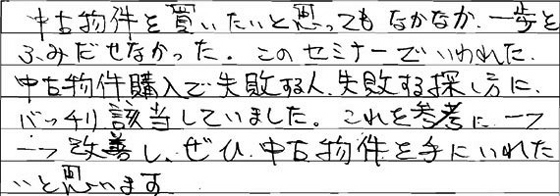 中古物件を買いたいと思ってもなかなか、一歩を
ふみだせなかった。このセミナーでいわれた、
中古物件購入で失敗する人、失敗する探し方に、
バッチリ該当していました。これを参考に一つ
一つ改善し、ぜひ、中古物件を手にいれた
いと思います